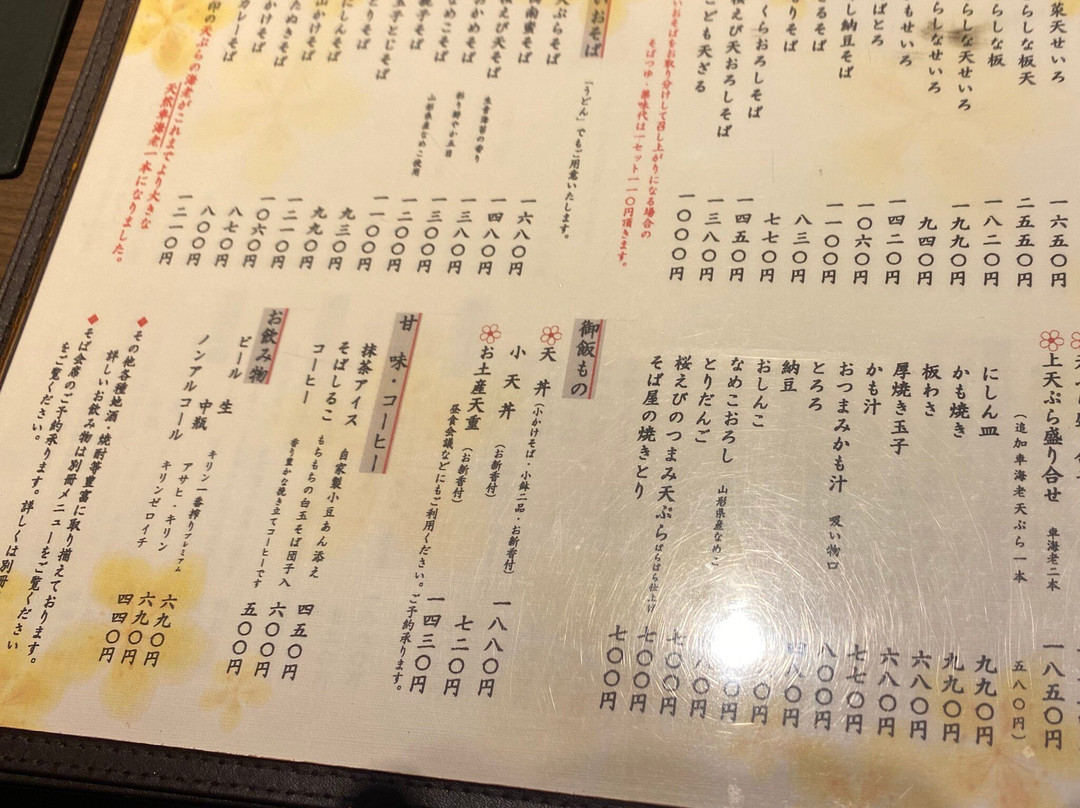 菜天せいろ 一六五〇円
らしな板天 二五五〇円
らしな板 一八二〇円
らしな天せいろ 一九九〇円
らしなせいろ 九四〇円
もせいろ 一四二〇円
ばとろ 一〇六〇円
し納豆そば 一一〇〇円
るそば 八三〇円
りそば 七七〇円
くらおろしそば 一四五〇円
桜えび天おろしそば 一三八〇円
こども天ざる 一〇〇〇円
いおそばをお取り分けして召し上がりになる場合の
そばつゆ・薬味代は一セット一一〇円頂きます。
いおそば
「うどん」でもご用意いたします。
天ぷらそば 一六八〇円
南蛮そば 一四八〇円
桜えび天そば 生青海苔の香り 一三八〇円
かめそば 彩り鮮やか五目 一三〇〇円
なめこそば 山形県産なめこ使用 一二〇〇円
親子そば 一一〇〇円
玉子とじそば 九三〇円
とりそば 九九〇円
にしんそば 一二一〇円
山かけそば 一〇六〇円
たぬきそば 八七〇円
かけそば 八〇〇円
カレーそば 一二一〇円
印の天ぷらの海老がこれまでより大きな
天然車海老一本になりました。
上天ぷら盛り合せ 車海老二本 一八五〇円
(追加車海老天ぷら一本 五八〇円)
にしん皿 九九〇円
かも焼き 九九〇円
板わさ 六八〇円
厚焼き玉子 六八〇円
かも汁 七七〇円
おつまみかも汁 吸い物口 八〇〇円
とろろ
納豆
おしんこ
なめこおろし 山形県産なめこ
とりだんご
桜えびのつまみ天ぷら ぱらぱら仕上げ 七〇〇円
そば屋の焼きとり 七〇〇円
御飯もの
天丼 (小かけそば・小鉢二品・お新香付) 一八八〇円
小天丼 (お新香付) 七二〇円
お土産天重 (お新香付) 一四三〇円
昼食会議などにもご利用ください。ご予約承ります。
甘味・コーヒー
抹茶アイス 自家製小豆あん添え 四五〇円
そばしるこ もちもちの白玉そば団子入 六〇〇円
コーヒー 香り豊かな挽き立てコーヒーです 五〇〇円
お飲み物
ビール 生 キリン一番搾りプレミアム 六九〇円
中瓶 アサヒ・キリン 六九〇円
ノンアルコール キリンゼロイチ 四四〇円
◆その他各種地酒・焼酎等豊富に取り揃えております。
詳しいお飲み物は別冊メニューをご覧ください。
◆そば会席のご予約承ります。詳しくは別冊
をご覧ください。